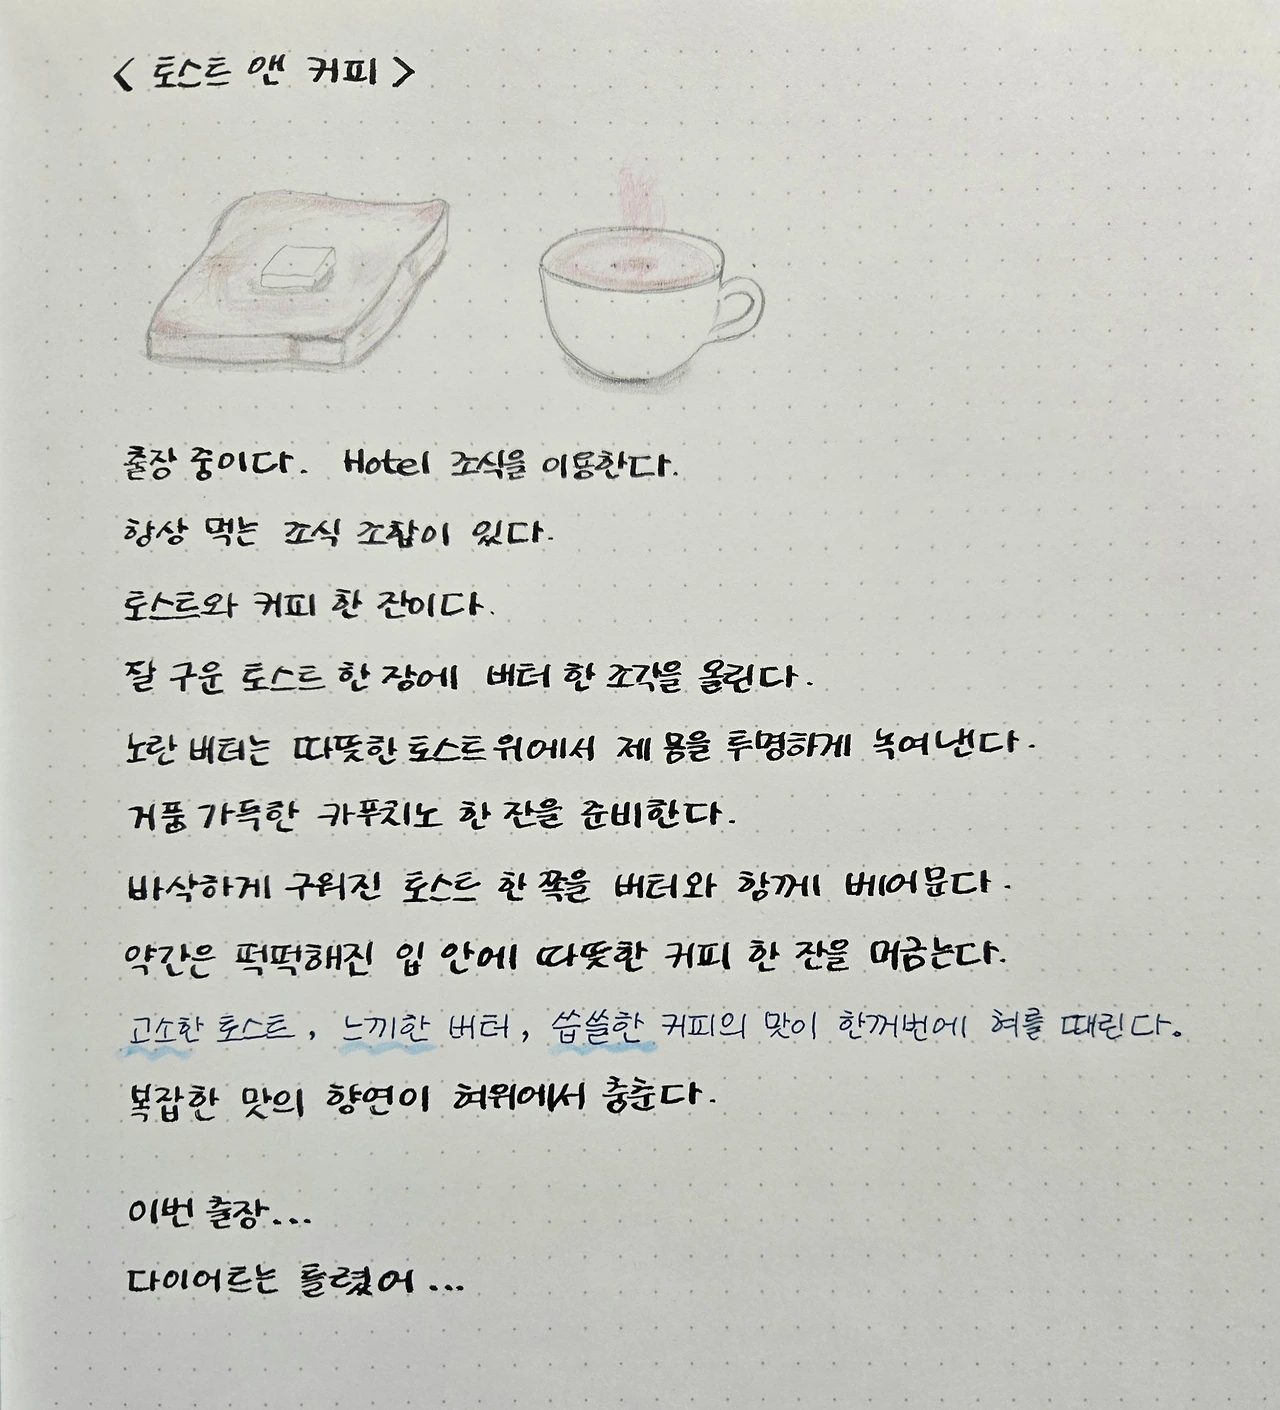 < 토스트 앤 커피 >
출장 중이다. Hotel 조식을 이용한다.
항상 먹는 조식 조합이 있다.
토스트와 커피 한 잔이다.
잘 구운 토스트 한 장에 버터 한 조각을 올린다.
노란 버터는 따뜻한 토스트 위에서 제 몸을 투명하게 녹여낸다.
거품 가득한 카푸치노 한 잔을 준비한다.
바삭하게 구워진 토스트 한 쪽을 버터와 함께 베어문다.
약간은 퍽퍽해진 입 안에 따뜻한 커피 한 잔을 머금는다.
고소한 토스트, 느끼한 버터, 씁쓸한 커피의 맛이 한꺼번에 혀를 때린다.
복잡한 맛의 향연이 혀위에서 춤춘다.
이번 출장...
다이어트는 틀렸어...